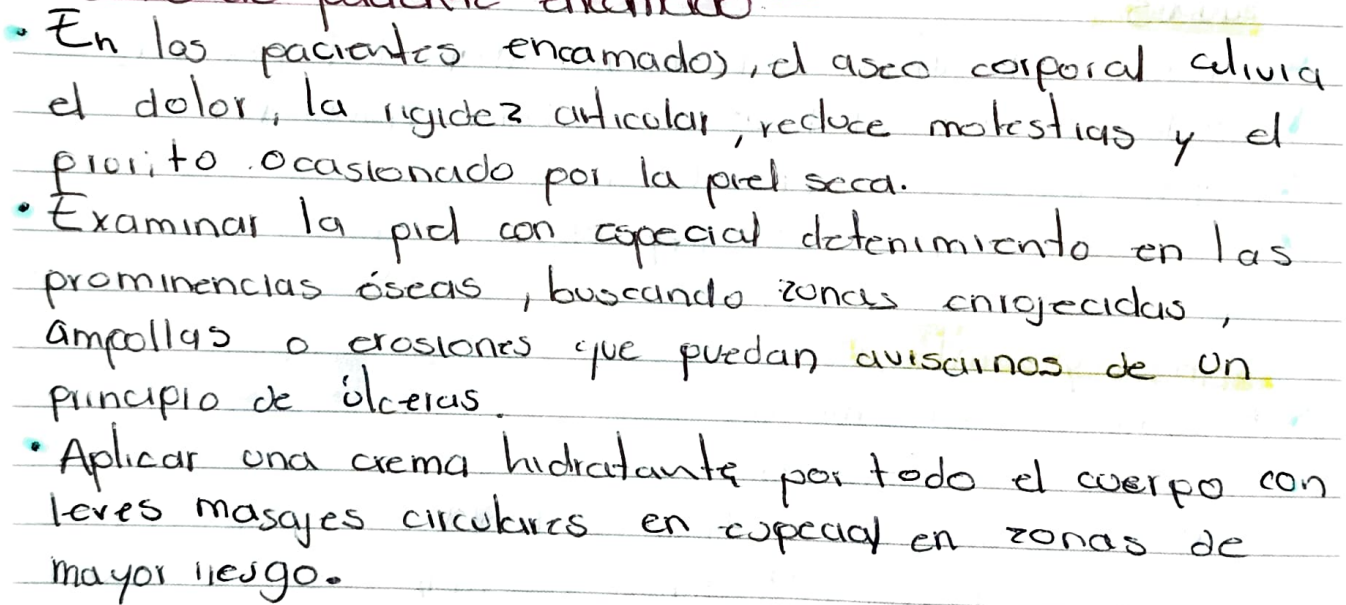 de paciente encamado.
• En los pacientes encamados, el aseo corporal alivia
el dolor, la rigidez articular, reduce molestias y el
priorito ocasionado por la piel seca.
• Examinar la piel con especial detenimiento en las
prominencias óseas, buscando zonas enrojecidas,
ampollas o erosiones que puedan avisarnos de un
principio de úlceras.
• Aplicar una crema hidratante por todo el cuerpo con
leves masajes circulares en especial en zonas de
mayor riesgo.